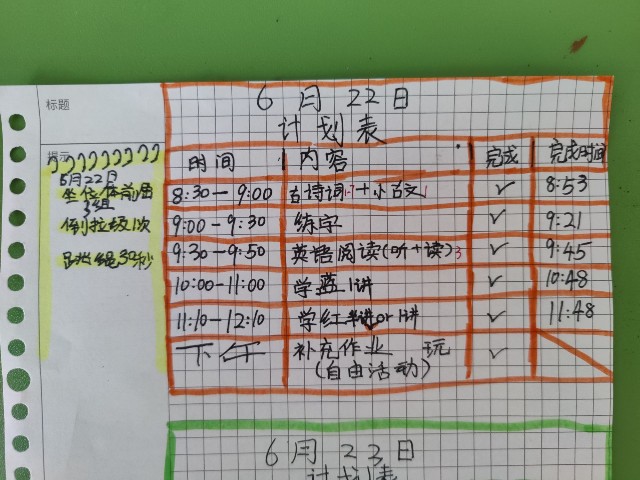 标题
6月22日
计划表
提示
6月22日
坐位体前屈
3组
倒拉级次
跳绳30秒
时间 内容 完成 完成时间
8:30—9:00 古诗词+小古文 ✓ 8:53
9:00—9:30 练字 ✓ 9:21
9:30—9:50 英语阅读(听+读) ✓ 9:45
10:00-11:00 学蓝1讲 ✓ 10:48
11:10-12:10 学红半讲or1讲 ✓ 11:48
下午 补充作业 玩 ✓
(自由活动)
6月23日
计划表